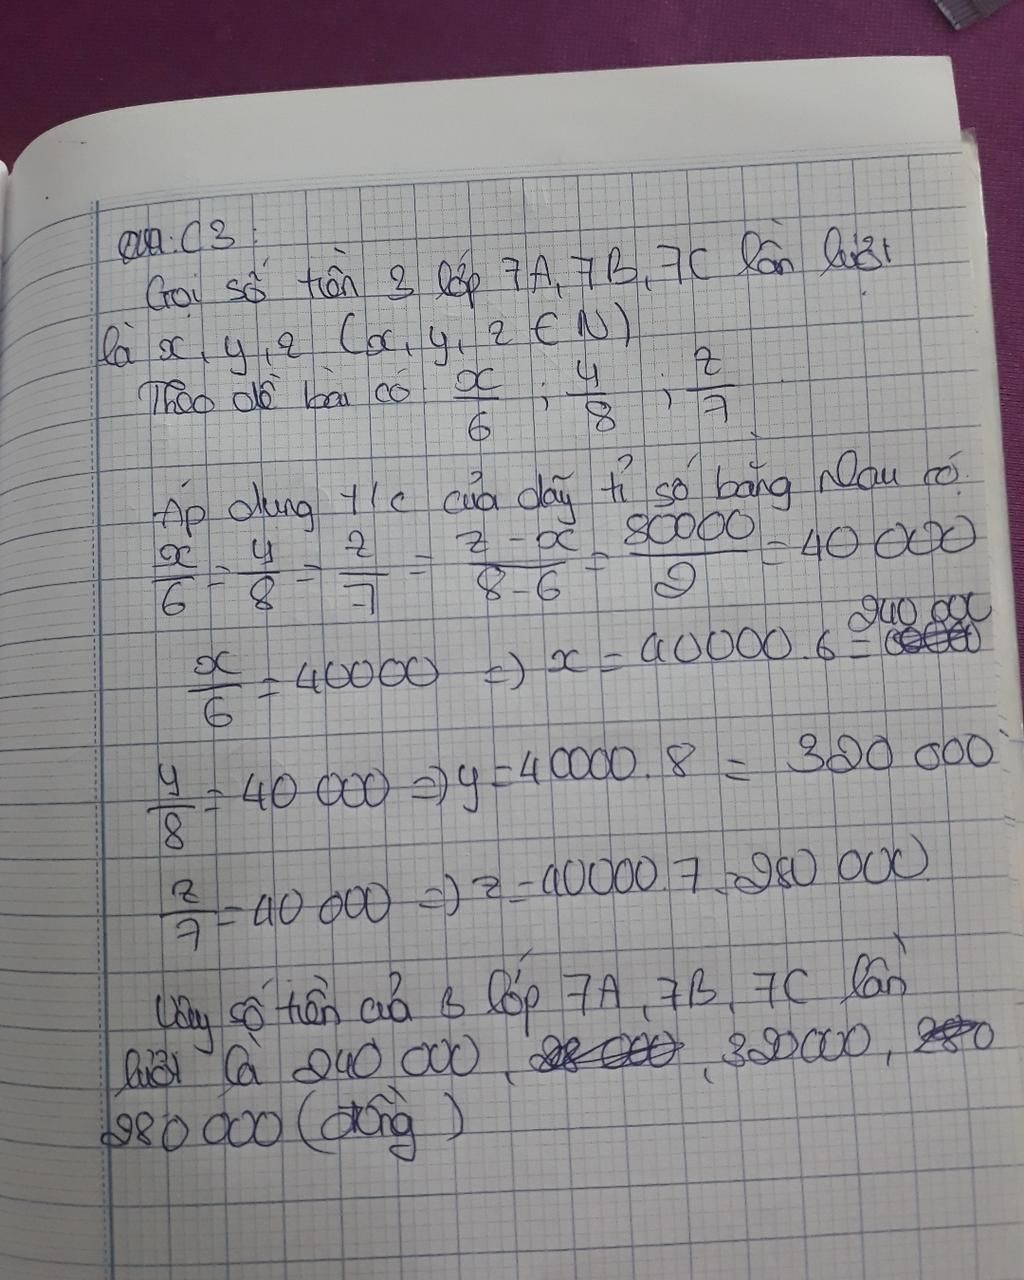 C3:
Gọi số tiền 3 lớp 7A, 7B, 7C lần lượt
là x, y, z (x, y, z ∈ N)
Theo đề bài có x/6 ; y/8 ; z/7
Áp dụng t/c của dãy tỉ số bằng nhau có:
x/6 = y/8 = z/7 = z - x/8 - 6 = 80000/2 = 40 000
x/6 = 40000 => x = 40000.6 = 240 000
y/8 = 40 000 => y = 40000.8 = 320 000
z/7 = 40 000 => z = 40000.7 = 280 000
Vậy số tiền của 3 lớp 7A, 7B, 7C lần
lượt là 240 000, , 320000,
280 000 (đồng)